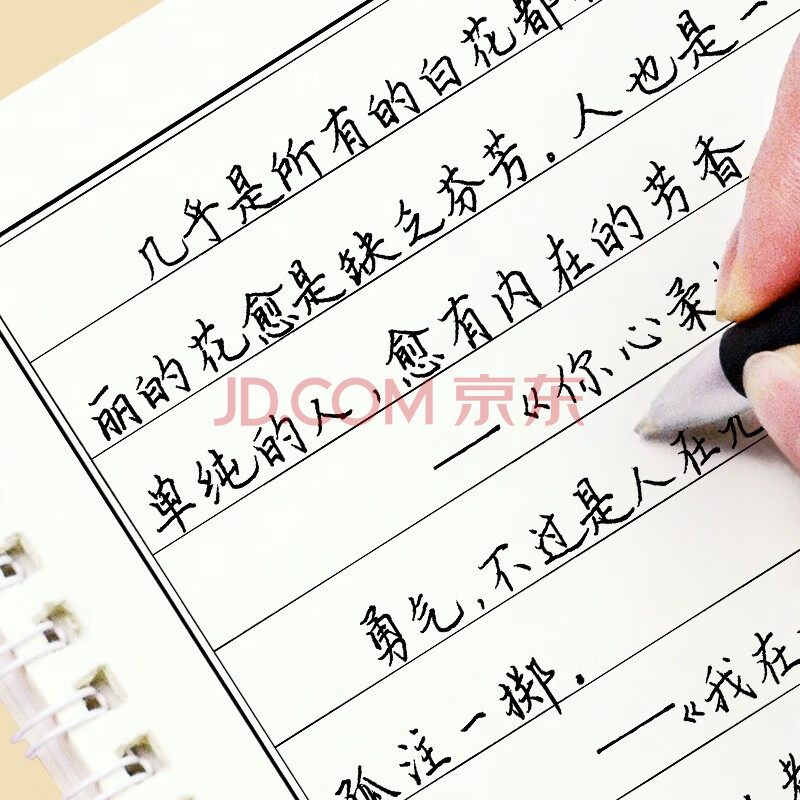 几乎是所有的白花都
丽的花愈是缺乏芬芳。人也是一
单纯的人,愈有内在的芳香
——《你心柔
JD.COM 京东
勇气,不过是人在
孤注一掷.
——《我在